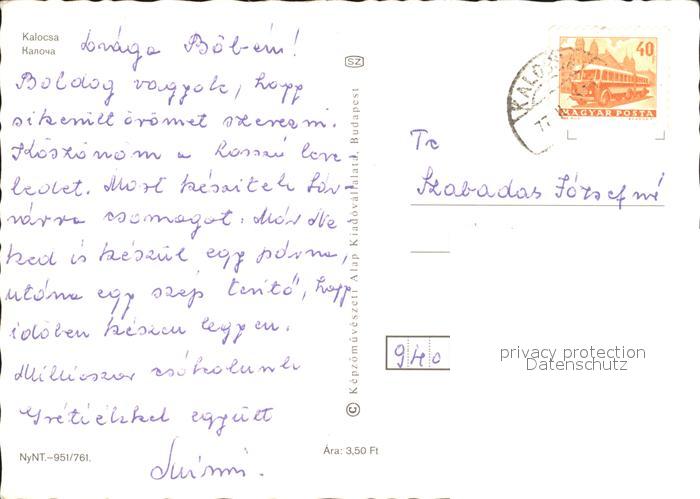 Kalocsa
Калоча
Drága Böbém!
Boldog vagyok, hogy
sikerült örömet szerezni.
Köszönöm a hosszú leve
ledet. Most készitek Sár-
várra csomagot. Már Ne
ked is készül egy párna,
utána egy szép teritő, hogy
időben készen legyen.
Milliószor csókolunk
Grétiékkel együtt
SZ
© Képzőművészeti Alap Kiadóvállalata, Budapest
40
MAGYAR POSTA
KALO
77
Szabadas Józsefné
940
privacy protection
Datenschutz
NyNT.–951/761.
Ára: 3,50 Ft